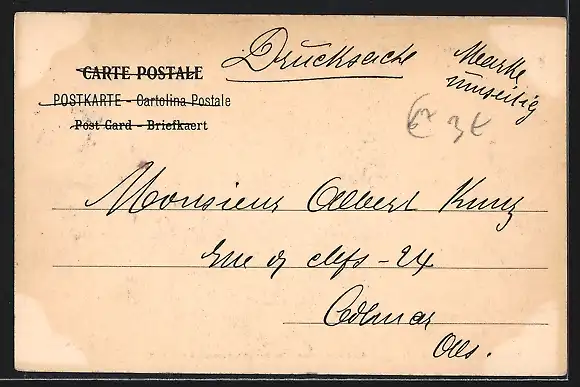 CARTE POSTALE
POSTKARTE - Cartolina Postale
Post Card - Briefkaert
Drucksache
Marke
umseitig
3 t
Monsieur Albert Kunz
Rue d clefs - 24
Colmar
Als.